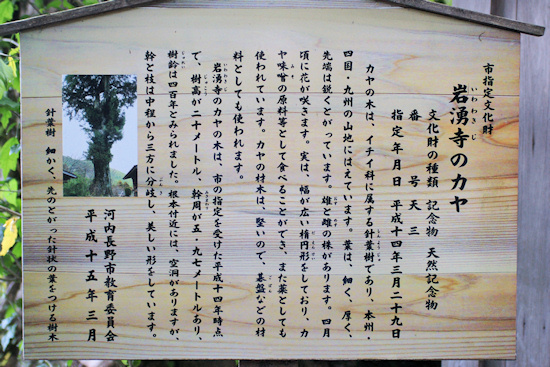 市指定文化財
岩湧寺のカヤ
いわわきじ
文化財の種類 記念物 天然記念物
番号 天三
指定年月日 平成十四年三月二十九日
カヤの木は、イチイ科に属する針葉樹であり、本州・
四国・九州の山地にはえています。葉は、細く、厚く、
先端は鋭くとがっています。雄と雌の株があります。四月
頃に花が咲きます。実は、幅が広い楕円形をしており、カ
ヤ味噌の原料等として食べることができ、また薬としても
使われています。カヤの材木は、堅いので、碁盤などの材
料としても使われます。
岩湧寺のカヤの木は、市の指定を受けた平成十四年時点
で、樹高が二十メートル、幹周が五・九七メートルあり、
樹齢は四百年とみられました。根本付近には、空洞がありますが、
幹と枝は中程から三方に分岐し、美しい形をしています。
平成十五年三月
河内長野市教育委員会
針葉樹 細かく、先のとがった針状の葉をつける樹木